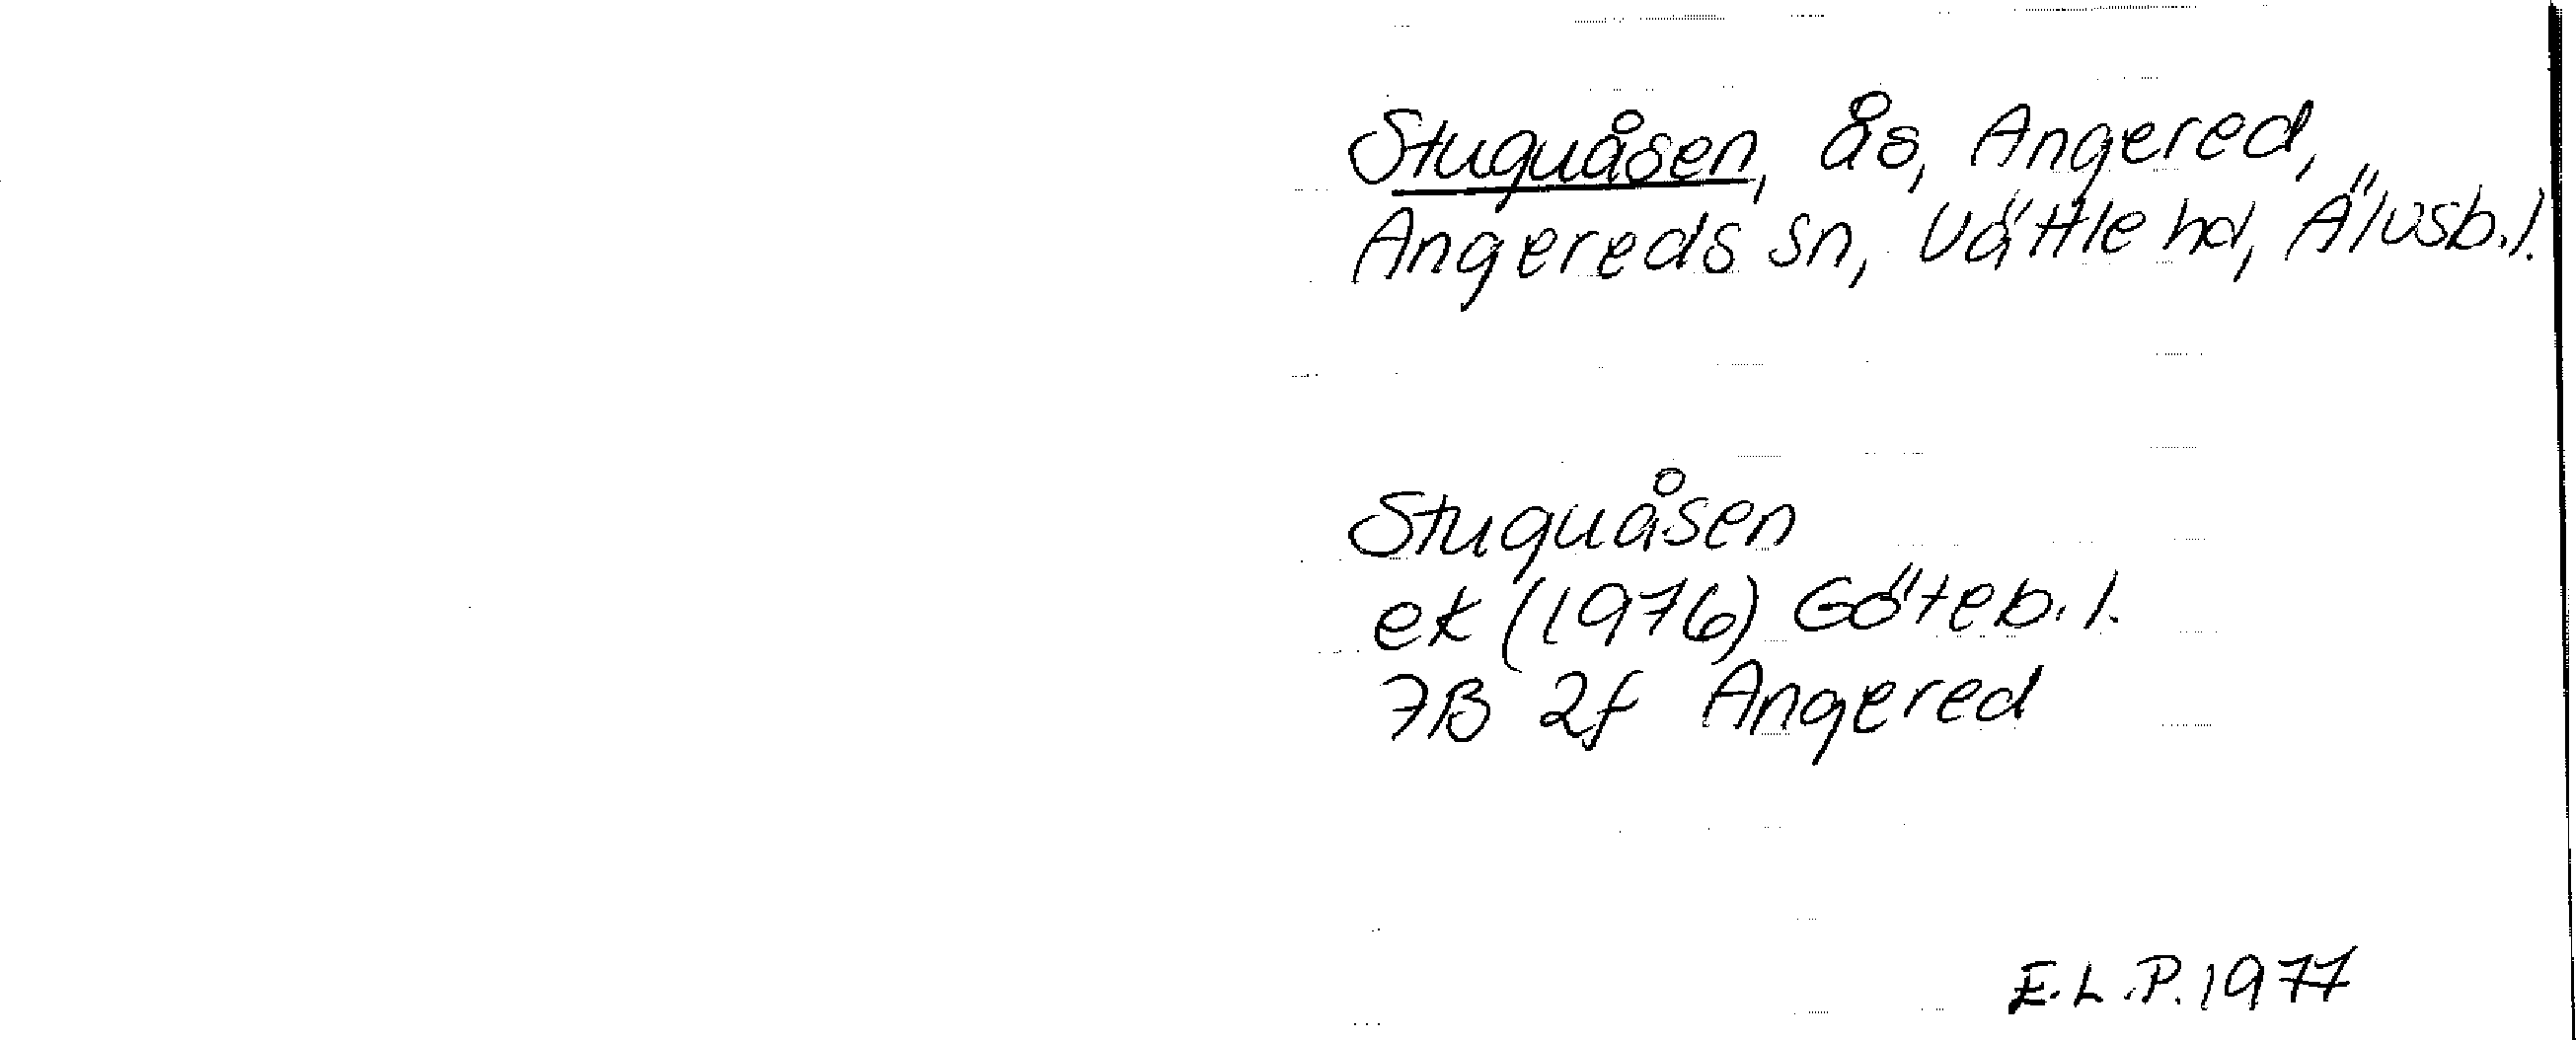 Stuguåsen, ås, Angered,
Angereds sn, Vättle hd, Älvsb. l.
Stuguåsen
ek (1976) Göteb. l.
7B 2f Angered
E.L.P. 1977